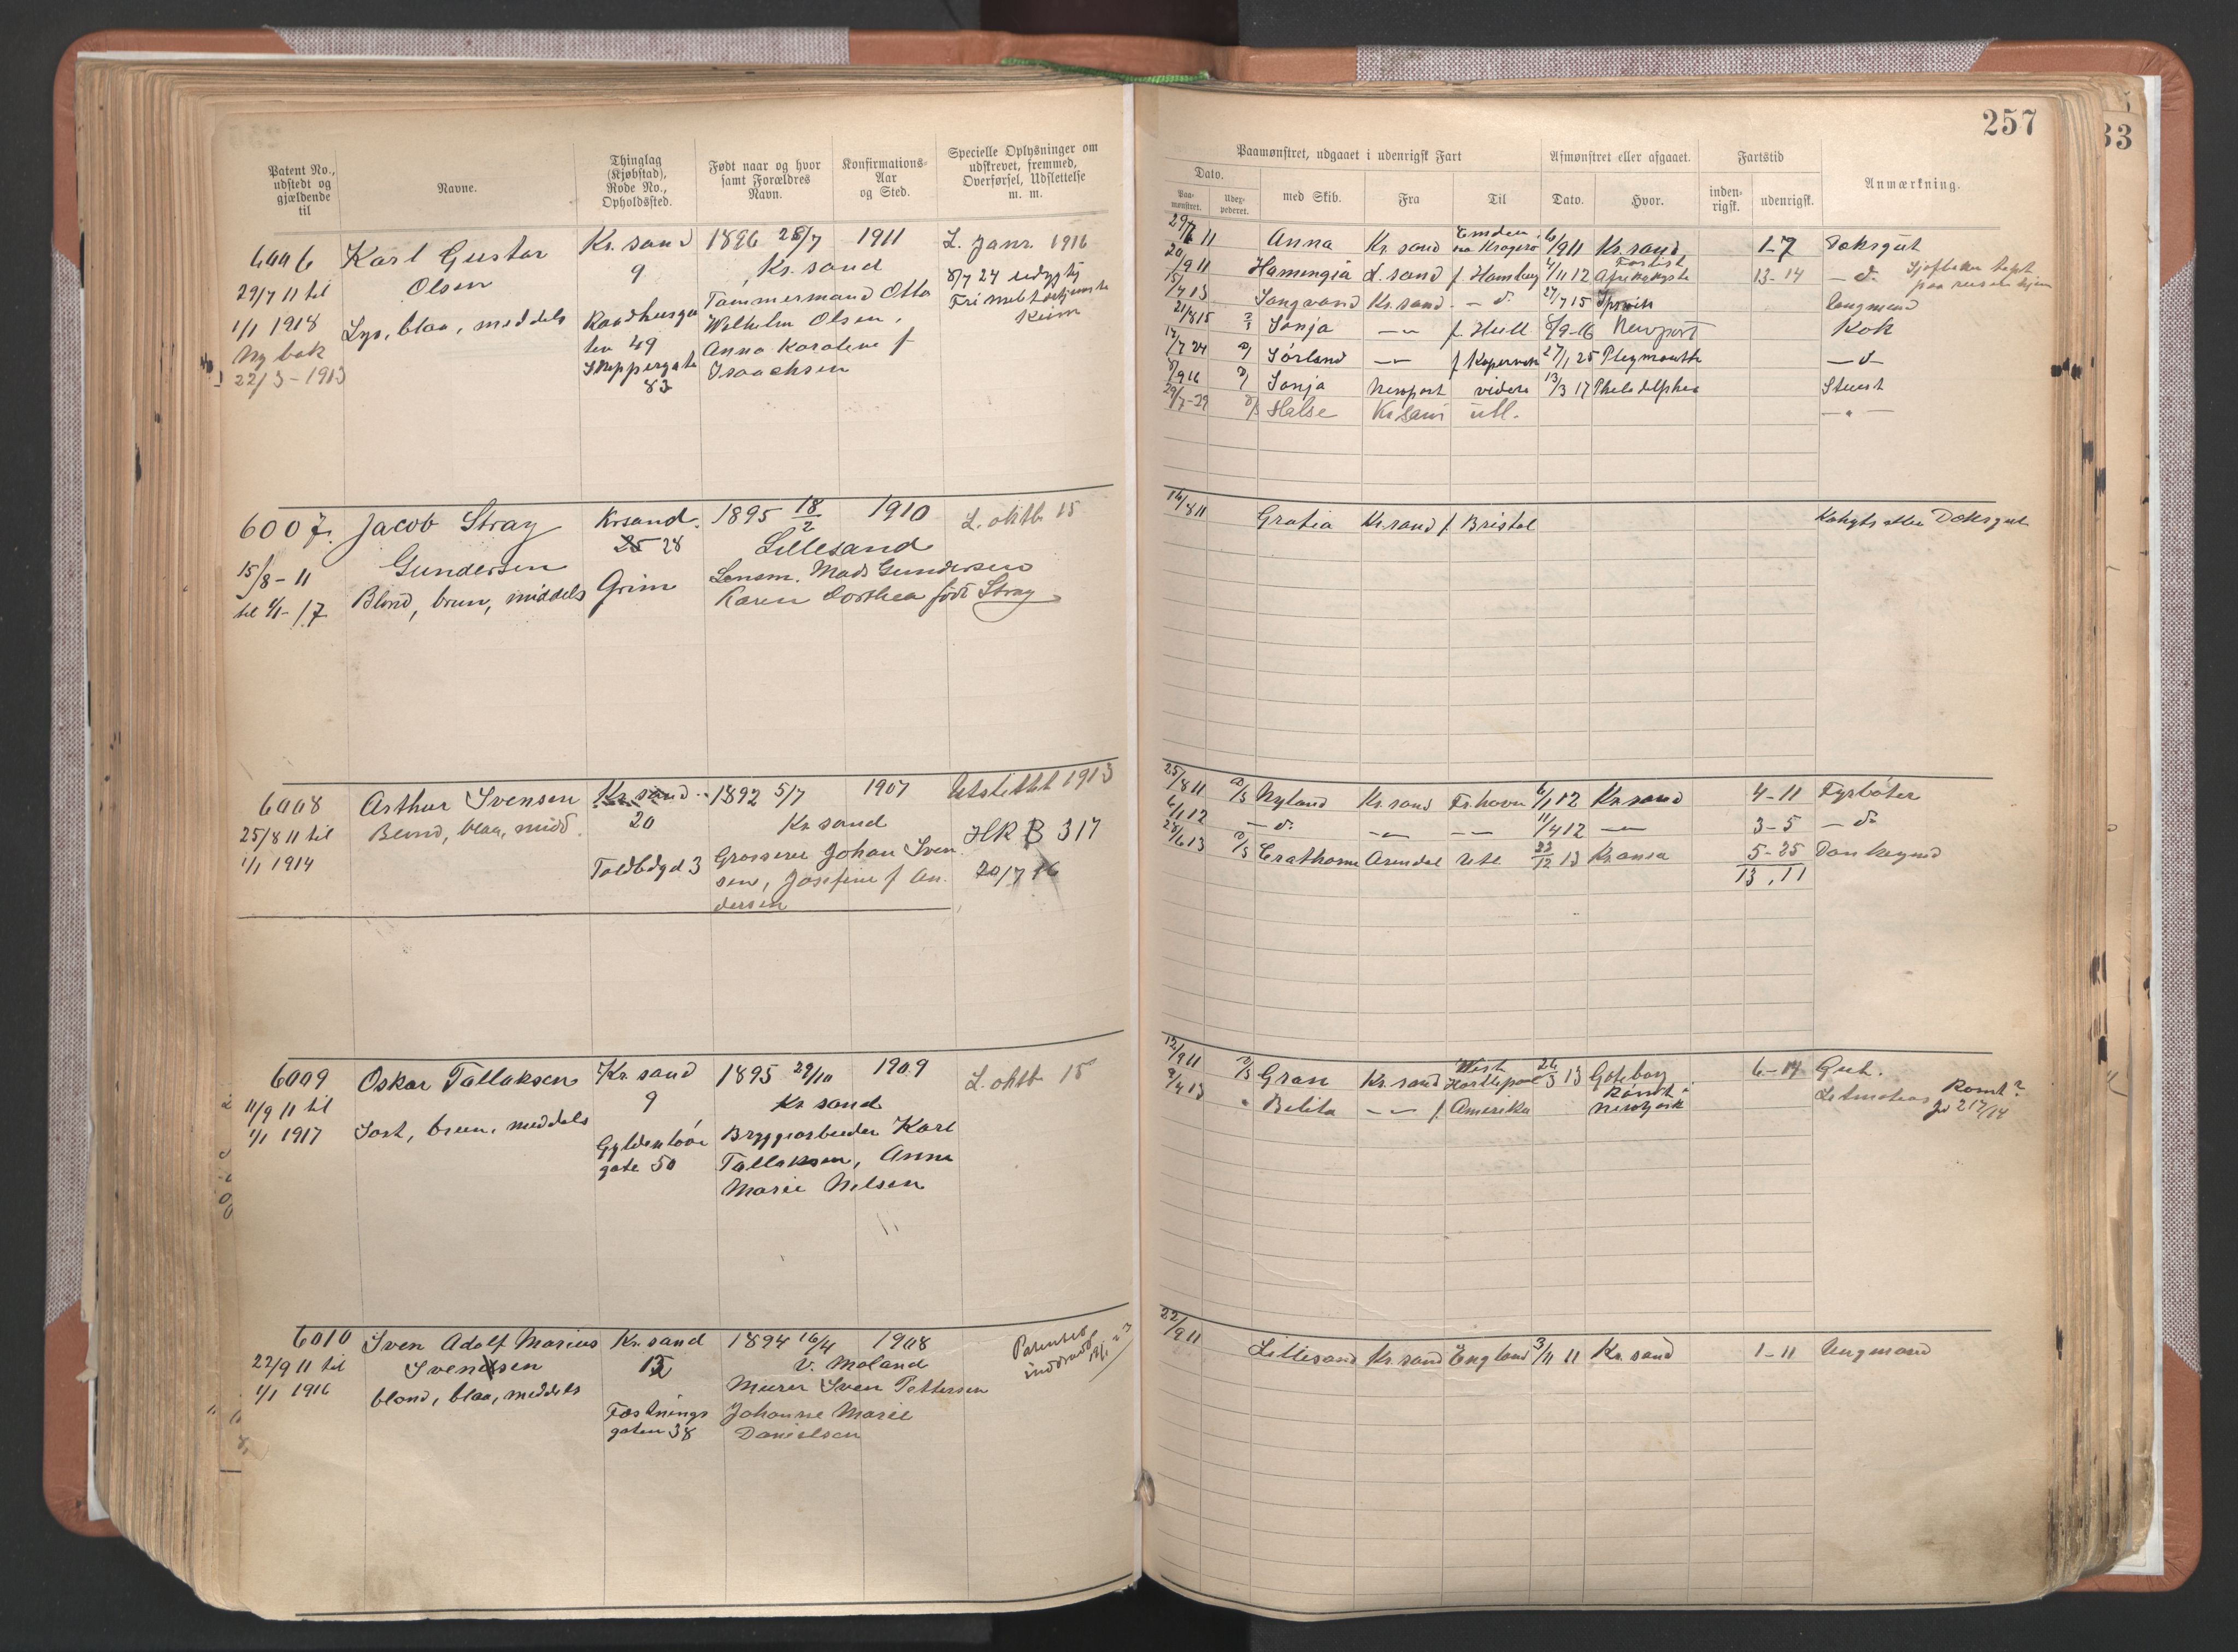 257
33
Patent No., udstedt og gjældende til
Navne.
Thinglag (Kjøbstad), Rode No., Opholdssted.
Født naar og hvor samt Forældres Navn.
Konfirmations-Aar og Sted.
Specielle Oplysninger om udskrevet, fremmed, Overførsel, Udslettelse m. m.
Paamønstret, udgaaet i udenrigsk Fart
Afmønstret eller afgaaet.
Fartstid
Anmærkning.
Dato.
Paa-mønstret.
Udex-pederet.
med Skib.
Fra
Til
Dato.
Hvor.
inden-rigsk.
udenrigsk.
6006 Karl Gustav Kr. sand 1896 28/7 1911 L. Janr. 1916
Olsen 9 Kr. sand 8/7 24
29/7 11 til Tømmermand Otto
1/1 1918 Lys, blaa, middels Raadhusga Wilhelm Olsen,
Ny bok ten 49 Anna Karoline f
22/3 - 1913 Skippergate Isaachsen
83
Anna Kr. sand Emden 6/9 11 Kr. sand 1-7 Dæksgut
20/9 11 Hamingia d. sand f Hamburg 4/11 12 13-14 - d.
Songvand Kr. sand - d. 27/7 15 Ipswich Langmand
21/8 15 Sonja f. Hull 8/9-16 Newport Kok
17/7 24 Sørland 27/1 25 Pleymouth - d -
8/9 16 Sonja Newport videre 13/3 17 Philadelphia Stuert
29/7-29 Halse Krsand utl.
6007. Jacob Stray Krsand. 1895 18/2 1910 L. oktb 15
Gundersen 25 28 Lillesand
15/8 - 11 Grim Lensm. Mads Gundersen
til 1/1 - 17 Blond, brun, middels Karen Dorthea født Stray
14/8 11 Gratia Kr. sand f. Bristol Kahyts eller Dæksgut
6008 Arthur Svensen Kr. sand 1892 5/7 1907 Utslettet 1913
25/8 11 til Blond, blaa, midd. 20 Kr sand
1/1 1914 Toldbdgd 3 Grosserer Johan Sven HKB 317
sen, Josefine f An. 20/7 16
dersen
25/8 11 D/S Nyland Kr. sand Fr.havn 6/1 12 Kr. sand 4-11 Fyrbøter
6/1 12 - d. 11/4 12 3-5 - d.
28/6 13 D/S Arendal Utl 22/12 13 Kr.ania 5-25 Donkeymd
13.11
6009 Oskar Tallaksen Kr. sand 1895 29/10 1909 L. oktb 15
11/9 11 til 9 Kr sand
1/1 1917 Sort, brun, middels Gyldenløve Bryggearbeider Karl
gate 50 Tallaksen, Anna
Marie Nilsen
12/9 11 D/S Gran Kr. sand West Hartlepool 26/3 13 Goteborg 6-14 Gut.
9/4 13 Belita f. Amerika Rømt i Newyork Letmatros Rømt?
6010 Sven Adolf Marius Kr. sand 1894 16/4 1908
22/9 11 til Svendsen V. Moland
1/1 1916 blond, blaa, middels Murer Sven Pettersen
Fæstnings Johanne Marie
gaten 38 Danielsen
Patentet inddraget
22/9 11 Lillesand Kr. sand England 3/11 11 Kr. sand 1-11 Ungmand